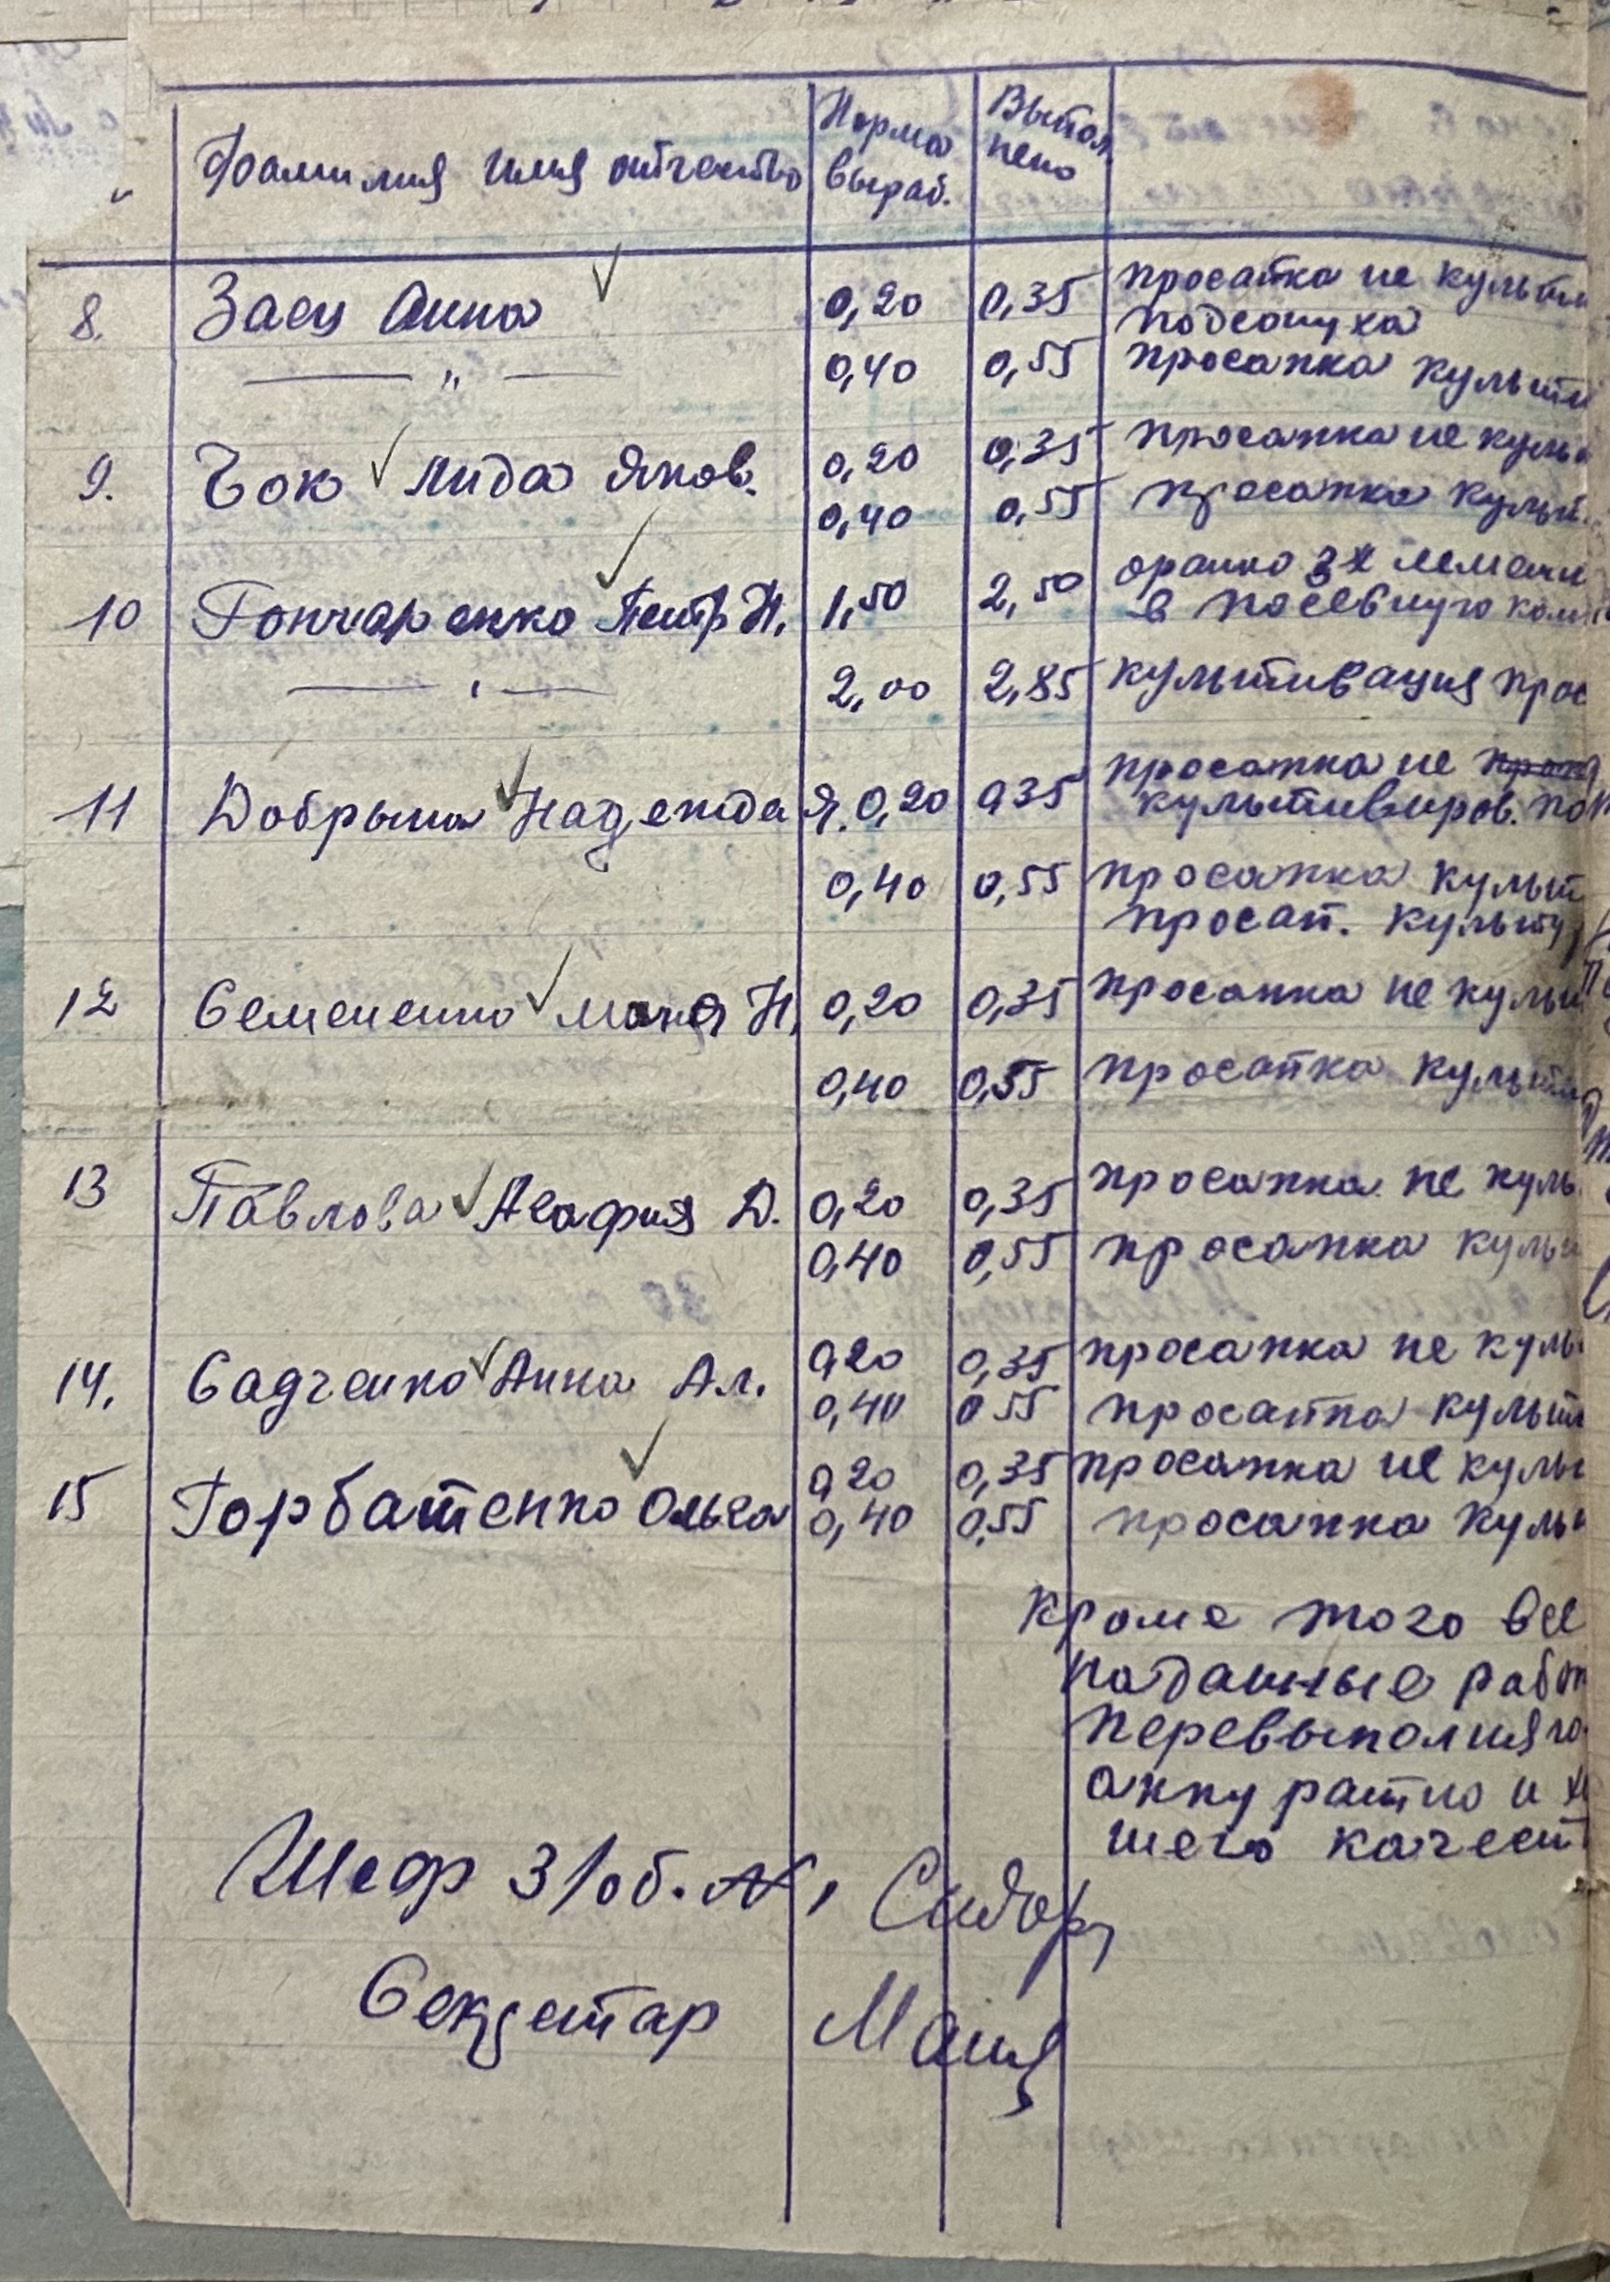 Фамилия имя отчество
Норма
выраб.
Выпол.
нено
8. Заец Анна 0,20 0,35 просапка не культи
подсонуха
— " — 0,40 0,55 просапка культи
9. Бок Лида Яков. 0,20 0,35 просапка не куль
0,40 0,55 просапка культ
10 Гончаренко Петр Н. 1,50 2,50 оранко 3х лемечн
в посевную ком
— " — 2,00 2,85 культивация прос
11 Добрыма Надежда Я. 0,20 0,35 просапка не
культивиров. под
0,40 0,55 просапка культ
просап. культу
12 Семененко Маня Н. 0,20 0,35 просапка не культ
0,40 0,55 просапка культи
13 Павлова Агафия Д. 0,20 0,35 просапка не куль
0,40 0,55 просапка куль
14. Садченко Анна Ал. 0,20 0,35 просапка не куль
0,40 0 55 просапка культ
15 Горбатенко Ольга 0,20 0,35 просапка не куль
0,40 0,55 просапка куль
Кроме того все
поданные работ
перевыполняю
аккуратно и х
шего качест
Шеф 3/об. №1 Сидор
Секретар Маня